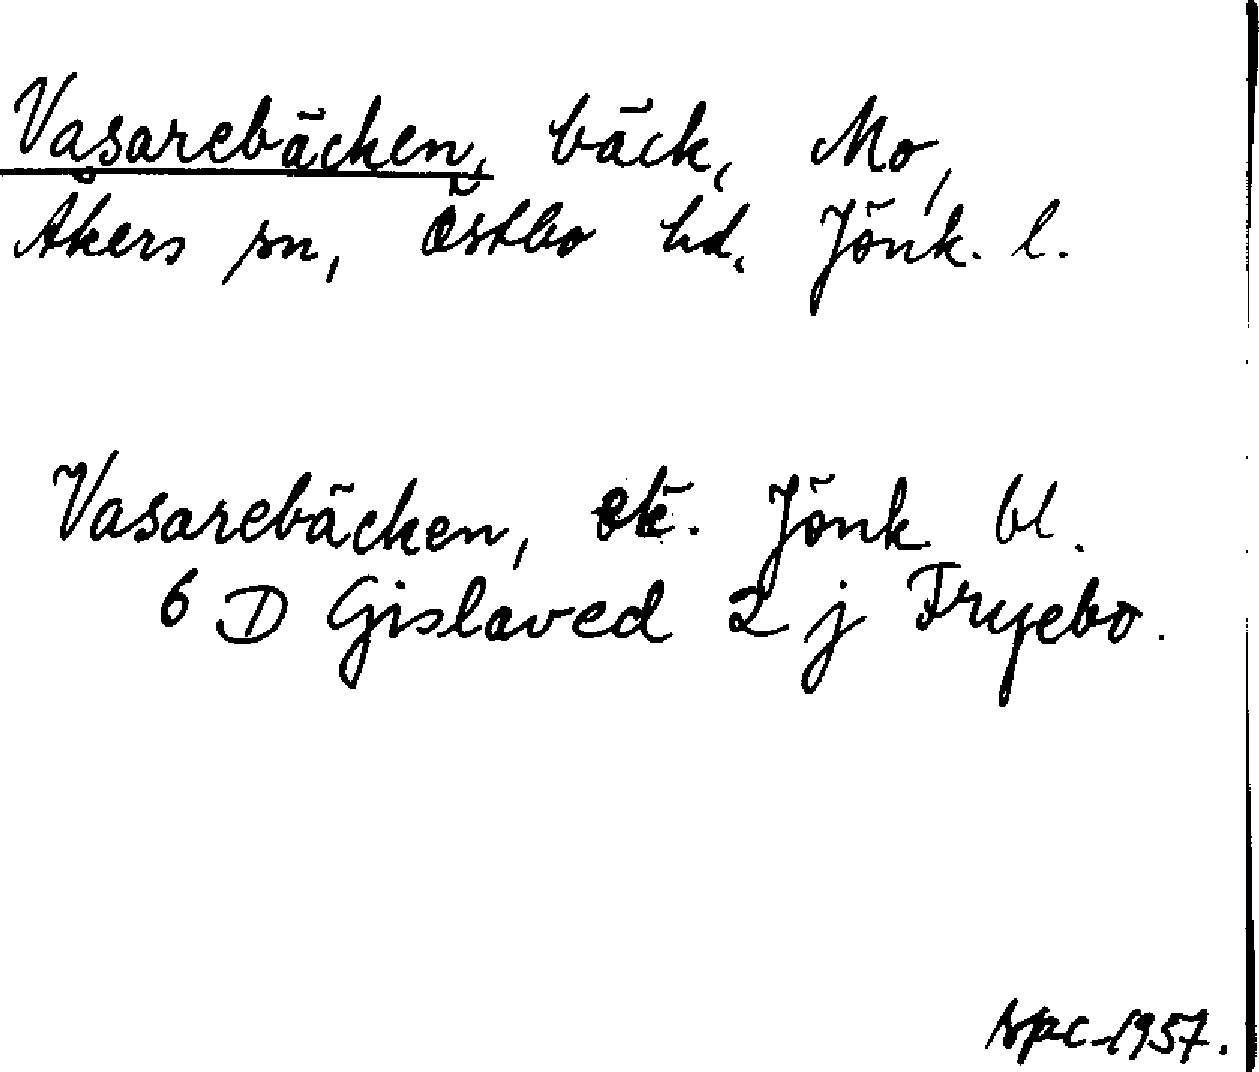 Vasarebäcken, bäck, Mo,
Åkers sn, Östbo hd. Jönk. l.
Vasarebäcken, ek. Jönk bl.
6 D Gislaved 2 j Fryebo.
spc-1957.